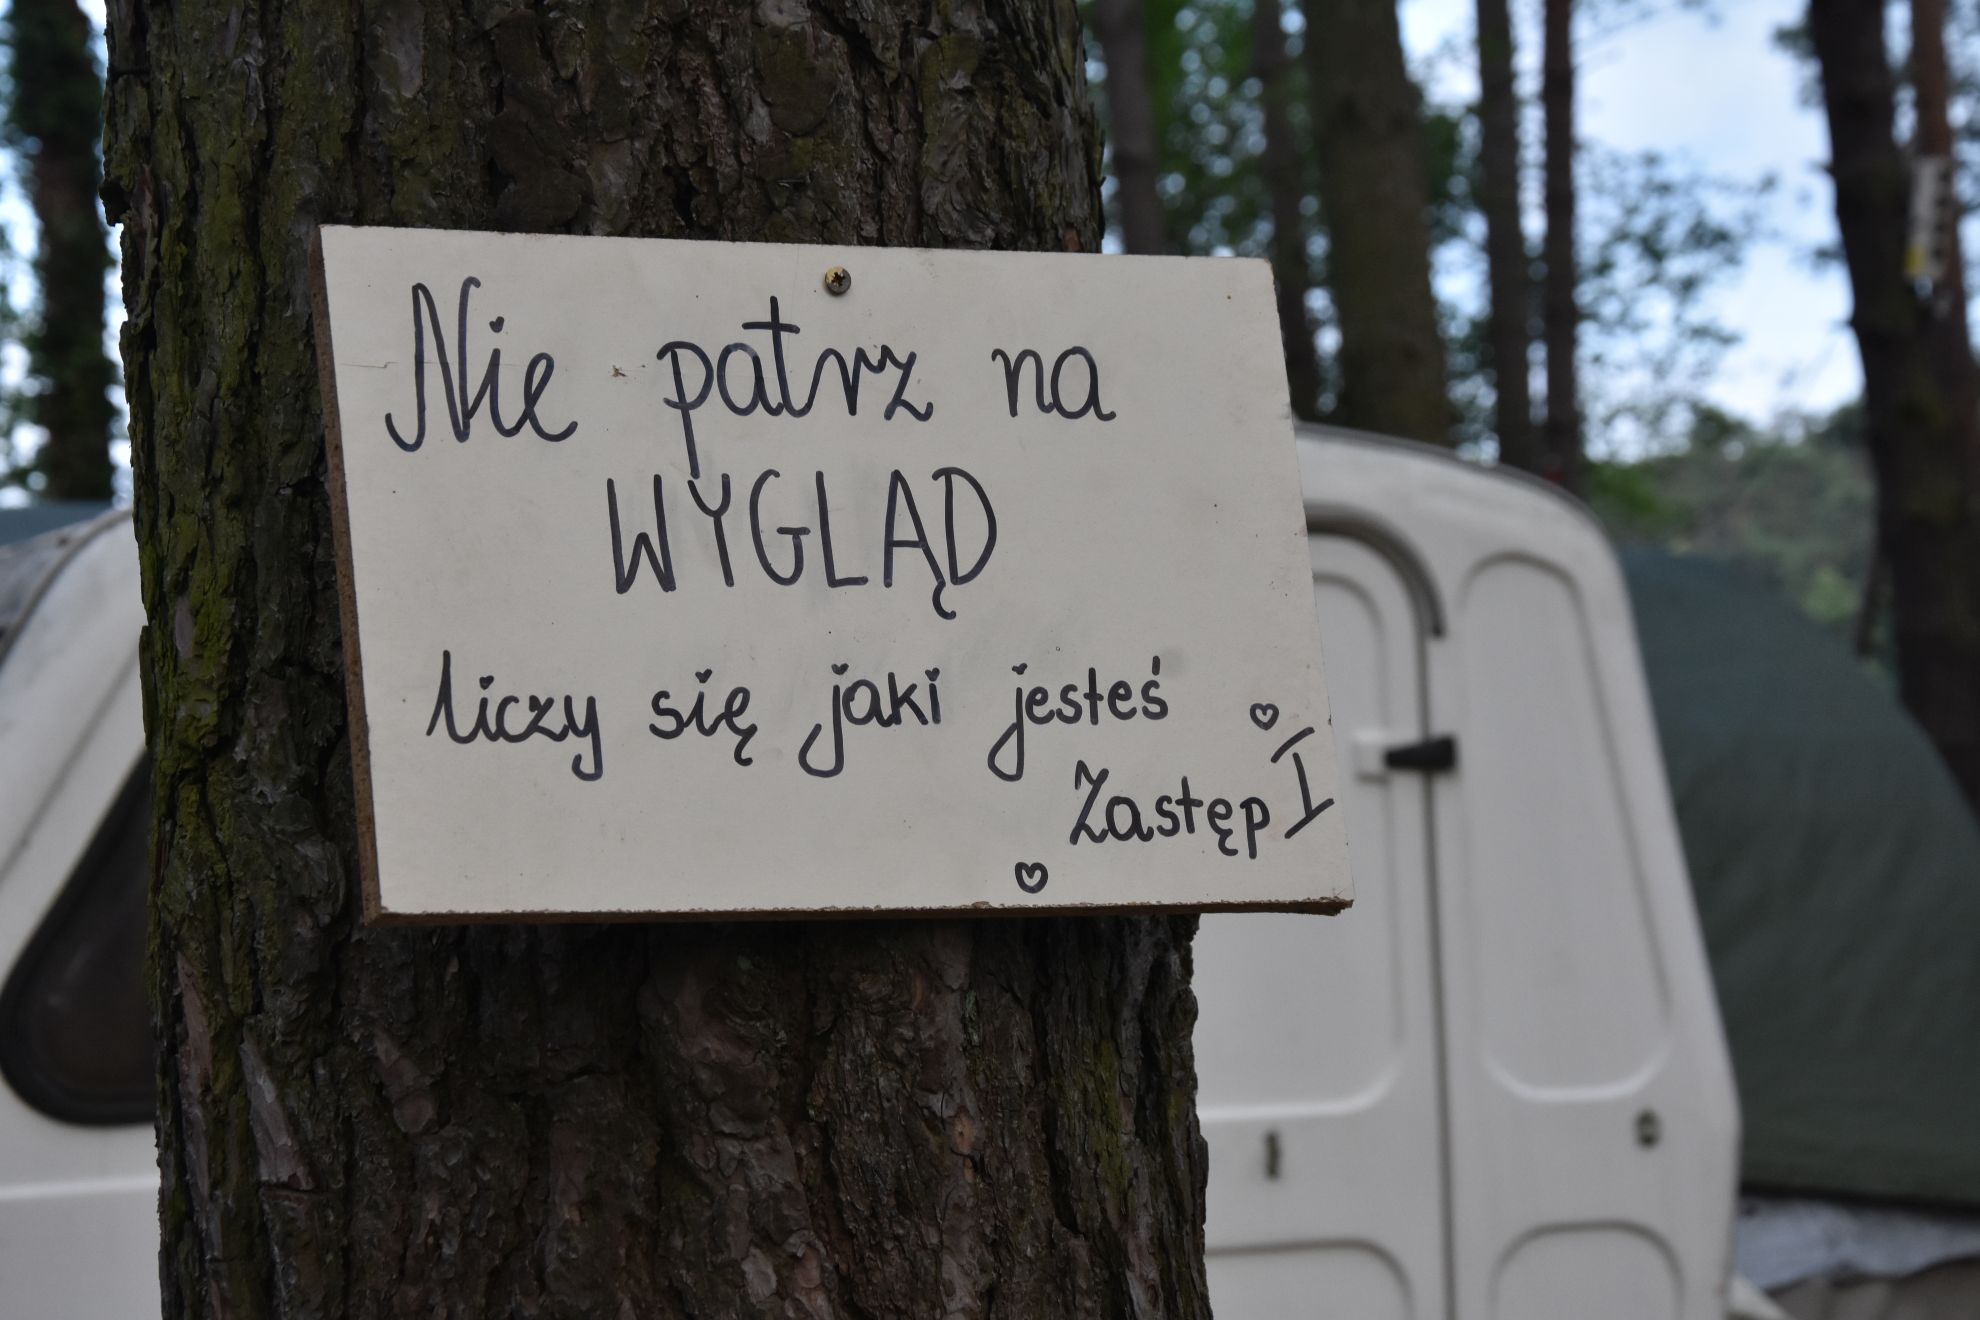 Nie patrz na
WYGLĄD
liczy się jaki jesteś
Zastęp I